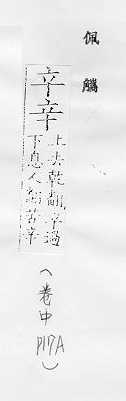 佩觿
䇂辛
上去乾翻䇂過
下息人翻苦辛
(卷中P17A)